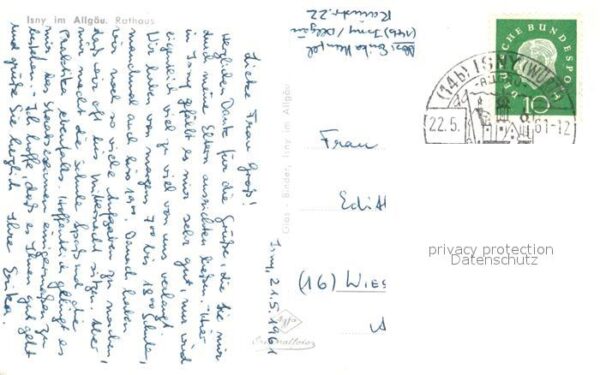 Isny im Allgäu. Rathaus
Isny, 21.5.1961
Liebe Frau Groß!
Herzlichen Dank für die Grüße, die Sie mir
durch meine Eltern ausrichten ließen. Hier
in Isny gefällt es mir sehr gut, nur wird
eigentlich viel zu viel von uns verlangt.
Wir haben von morgens 7.00 bis 18.00 Schule,
manchmal auch bis 19.00. Danach haben
wir noch so viele Aufgaben zu machen,
daß wir oft bis Mitternacht sitzen. Aber
mir macht die Schule Spaß und die
Praktika ebenfalls. Hoffentlich gelingt es
mir das Staatsexamen einigermaßen zu
bestehen. Ich hoffe, daß es Ihnen gut geht
und grüße Sie herzlich Ihre Erika.
Glas-Binder, Isny im Allgäu
Agfa
Originalfoto
Abs. Erika
(14b) Isny/Allgäu
22
DEUTSCHE BUNDESPOST
10
(14b) ISNY (WÜRTT)
ALLGÄU
22.5. 61-12
Frau
Edith
(16) Wies
A
privacy protection
Datenschutz